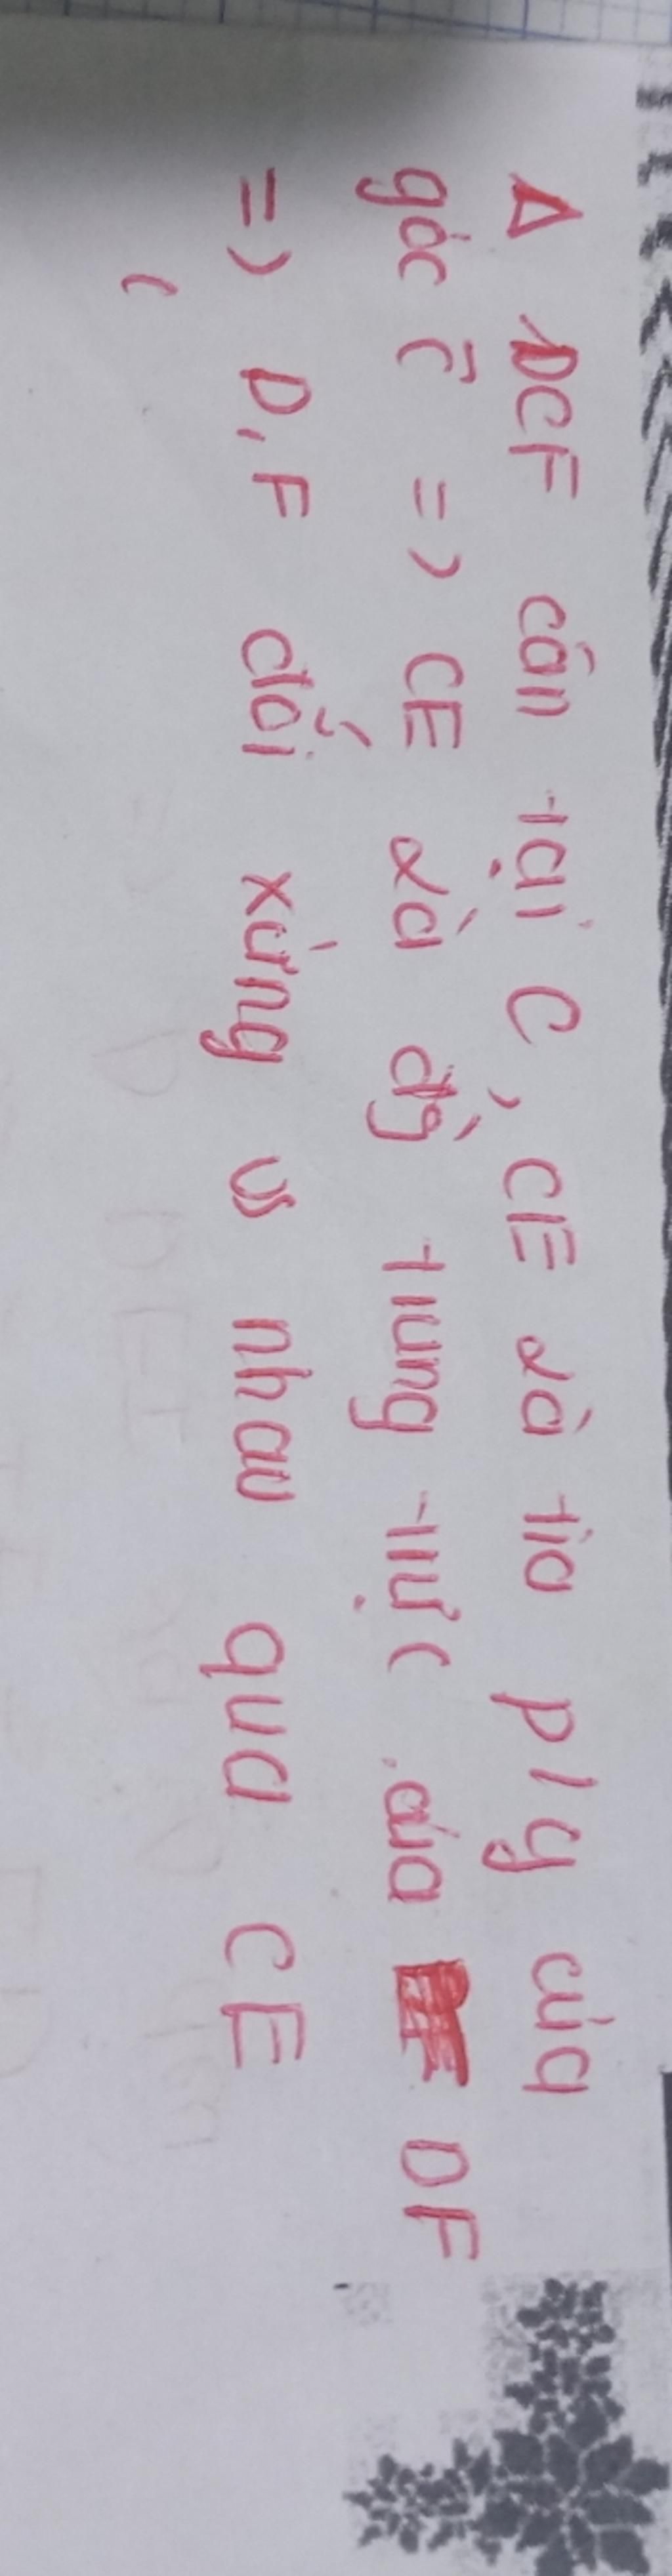 Δ DCF cân tại C, CE là tia p/g của
góc C => CE là đg trung trực của DF
=> D, F đối xứng vs nhau qua CE